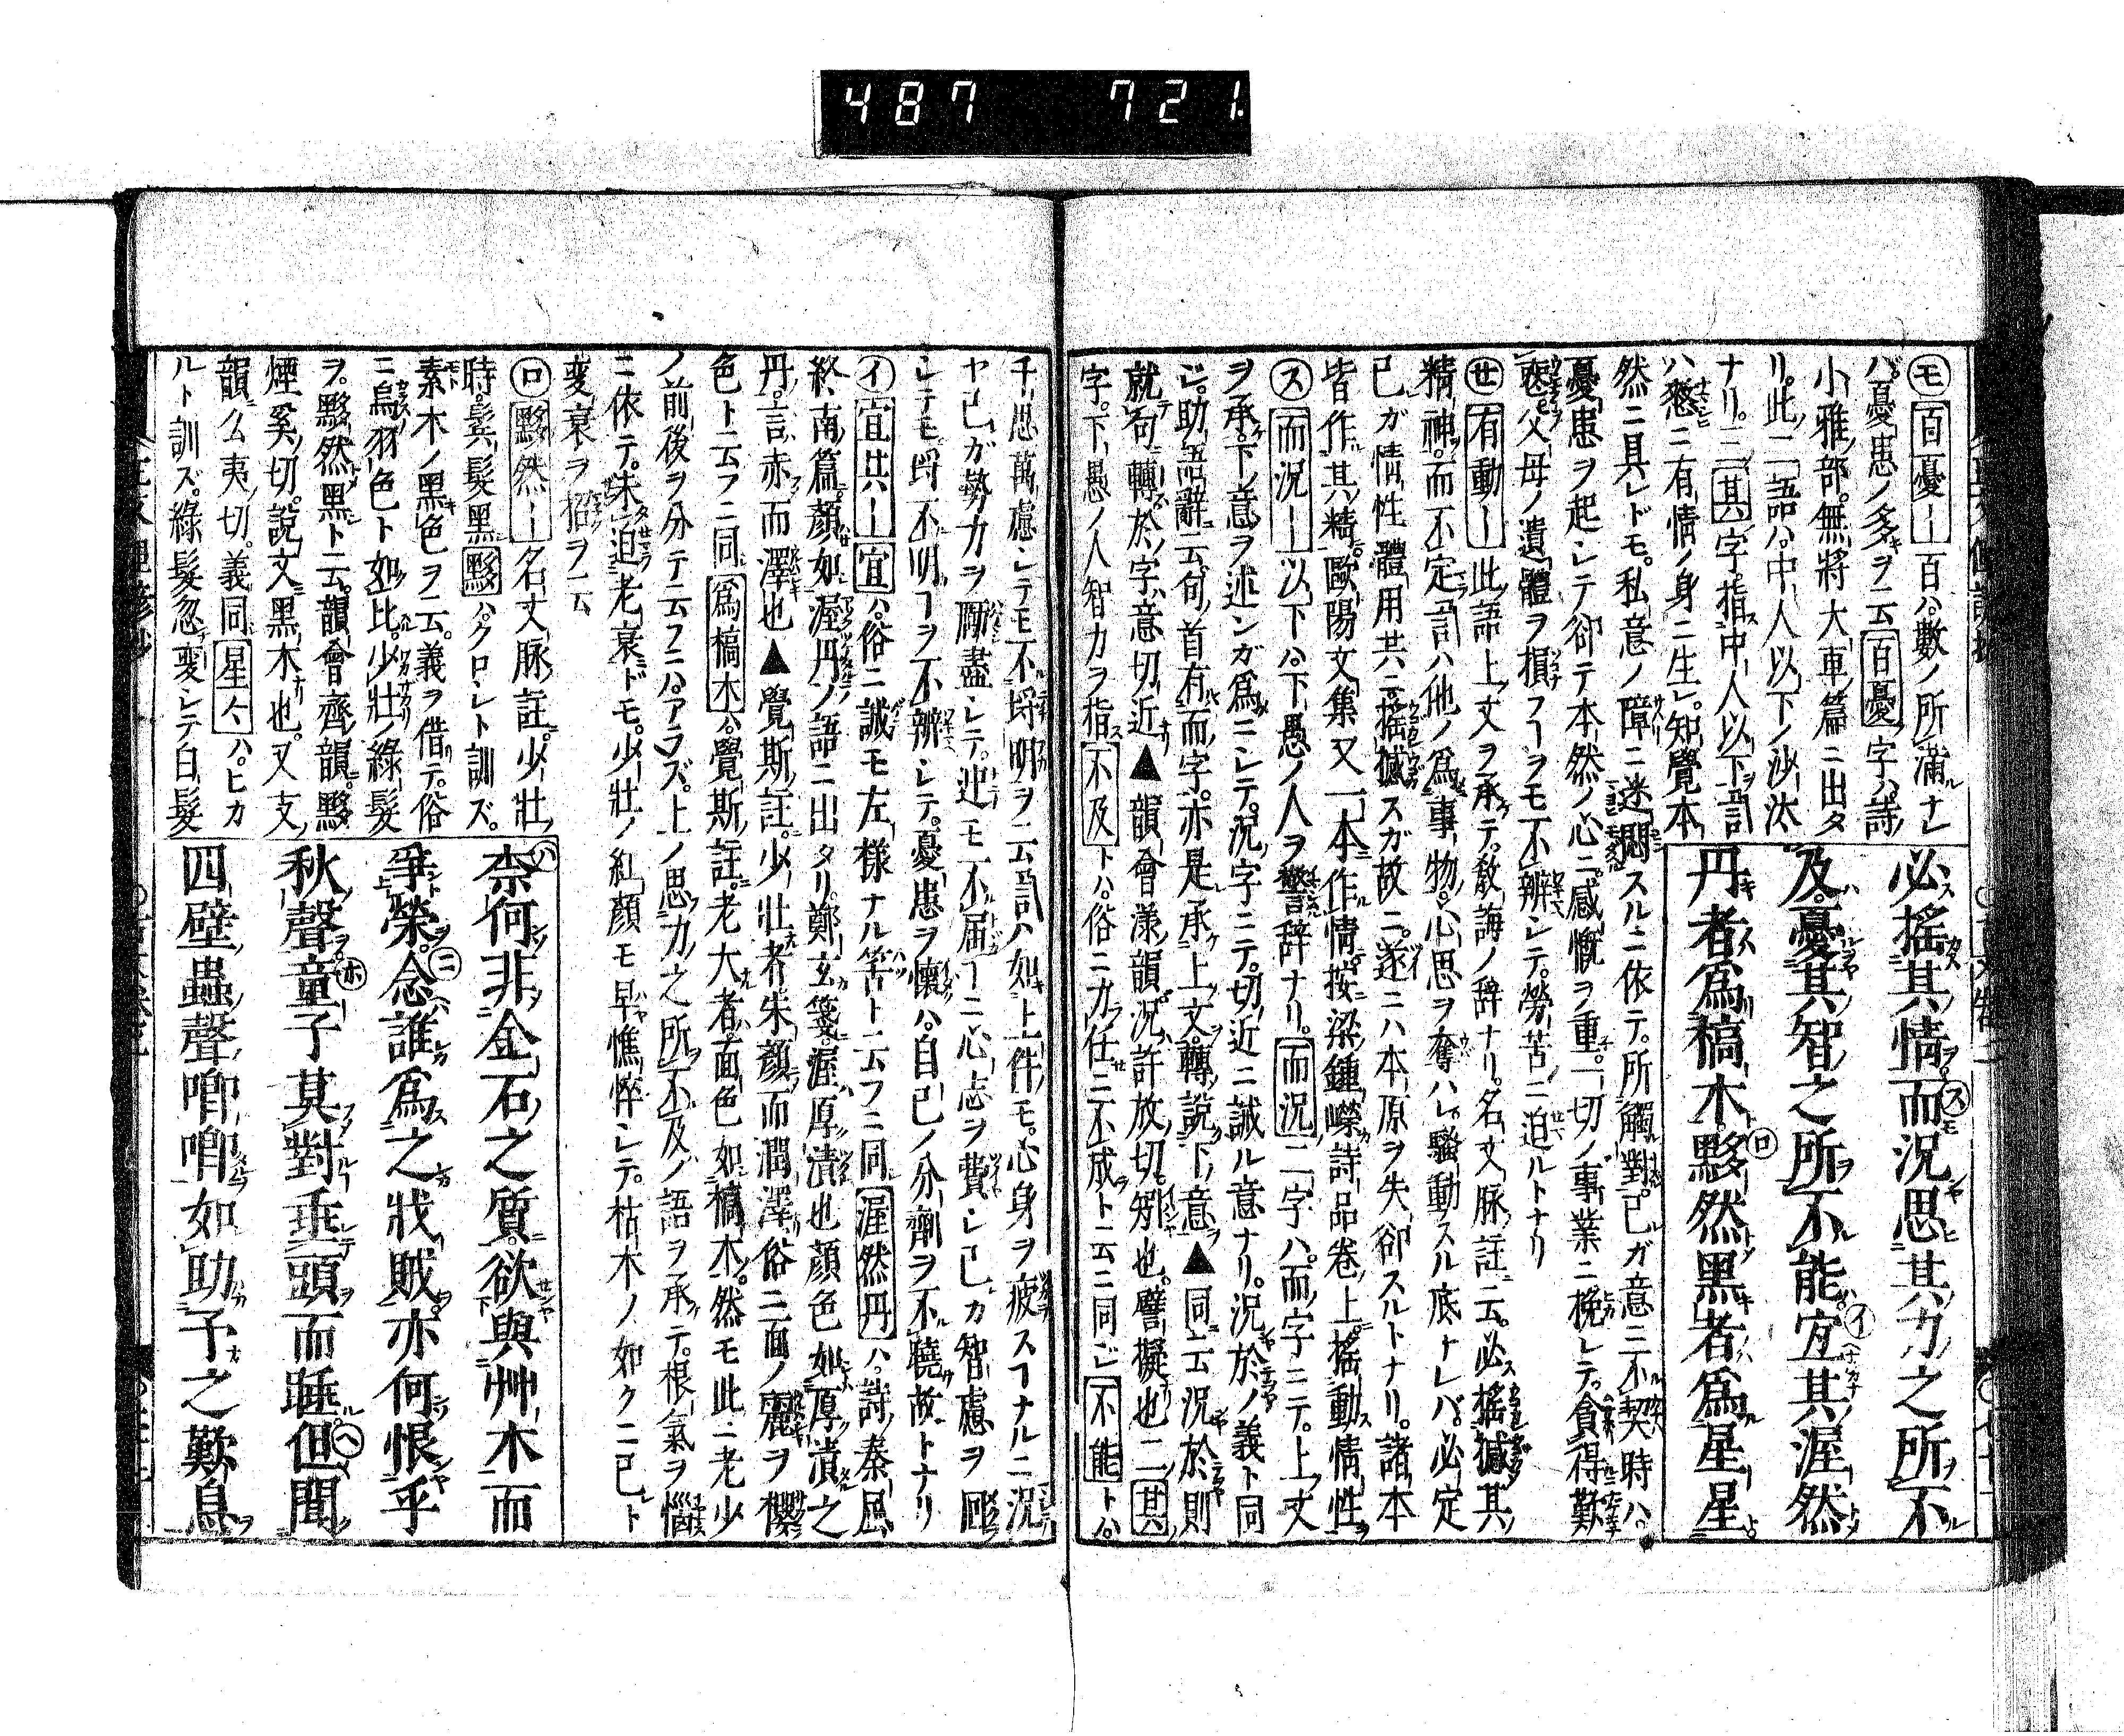 487 721
必搖其情而況思其力之所不
及憂其智之所不能宜其渥然
丹者爲槁木黟然黑者爲星星
㋲百憂ー百ハ數ノ所滿ナレ
バ憂患ノ多キヲ云百憂字ハ詩
小雅ノ部無將大車ノ篇ニ出タ
リ此二語ハ中人以下ノ沙汰
ナリ二其字指中人以下言
ハ愁ニ有情ノ身ニ生レ知覺本
然ニ具レドモ私意ノ障ニ迷悶スルニ依テ所觸對己ガ意ニ不契時ハ
憂患ヲ起シテ卻テ本然ノ心ニ感慨ヲ重一切ノ事業ニ挽レテ貪得歎
父母ノ遺體ヲ損フヿヲモ不辨シテ勞苦ニ迫ルトナリ
㋝有動ー此語上文ヲ承テ敎誨ノ辞ナリ名文脉註ニ云必搖撼其
精神而不定言ハ他ノ爲事物心思ヲ奪ハレ騷動スル底ナレバ必定
己ガ情性體用共ニ搖撼スガ故ニ遂ニハ本原ヲ失卻スルトナリ諸本
皆作其精歐陽文集又一本作情按梁鍾嶸詩品卷上搖動情性
㋜而況ー以下ハ下愚ノ人ヲ警辞ナリ而況二字ハ而字ニテ上文
ヲ承下ノ意ヲ述ンガ爲ニシテ況字ニテ切近ニ誡ル意ナリ況於ノ義ト同
ジ助語辭云句首有而字亦是承上文轉說下意▲同云況於則
就句轉於字意切近▲韻會漾韻況許放切矧也譬擬也二其
字下愚ノ人智力ヲ指不及トハ俗ニ力任ニ不成ト云ニ同ジ不能トハ
千思萬慮シテモ不埒明ヲ云言ハ如上件モ心身ヲ疲スヿナルニ況
ヤ己ガ勢力ヲ勵盡シテ迚モ不届ヿニ心志ヲ費シ己カ智慮ヲ廻
シテモ埒不明ヿヲ不辨シテ憂患ヲ懷ハ自己ノ分劑ヲ不曉故トナリ
㋑宜其ー宜ハ俗ニ誠モ左樣ナル筈ト云フニ同渥然丹ハ詩秦風
終南篇顏如渥丹ノ語ニ出タリ鄭玄箋渥厚漬也顏色如厚漬之
丹言赤而澤也▲覺斯註少壯者朱顏而潤澤俗ニ面ノ麗ヲ櫻
色ト云フニ同爲槁木ハ覺斯註老大者面色如槁木然モ此ニ老少
ノ前後ヲ分テ云フニハアラズ上ノ思力之所不及ノ語ヲ承テ根氣ヲ惱
ニ依テ未迫老衰ドモ少壯ノ紅顏モ早憔悴シテ枯木ノ如クニ已ト
変衰ヲ招ヲ云
㋺黟然ー名文脉註少壯
時鬂髮黑黟ハクロシト訓ズ
素木ノ黑色ヲ云義ヲ借テ俗
ニ烏羽色ト如比少壯ノ綠髮
ヲ黟然黑ト云韻會齊韻黟
煙奚切說文黑木也又支
韻幺夷切義同星々ハヒカ
ルト訓ズ綠髮忽変シテ白髮
奈何非金石之質欲與艸木而
爭榮念誰爲之戕賊亦何恨乎
秋聲童子莫對垂頭而睡但聞
四壁蟲聲喞喞如助予之歎息